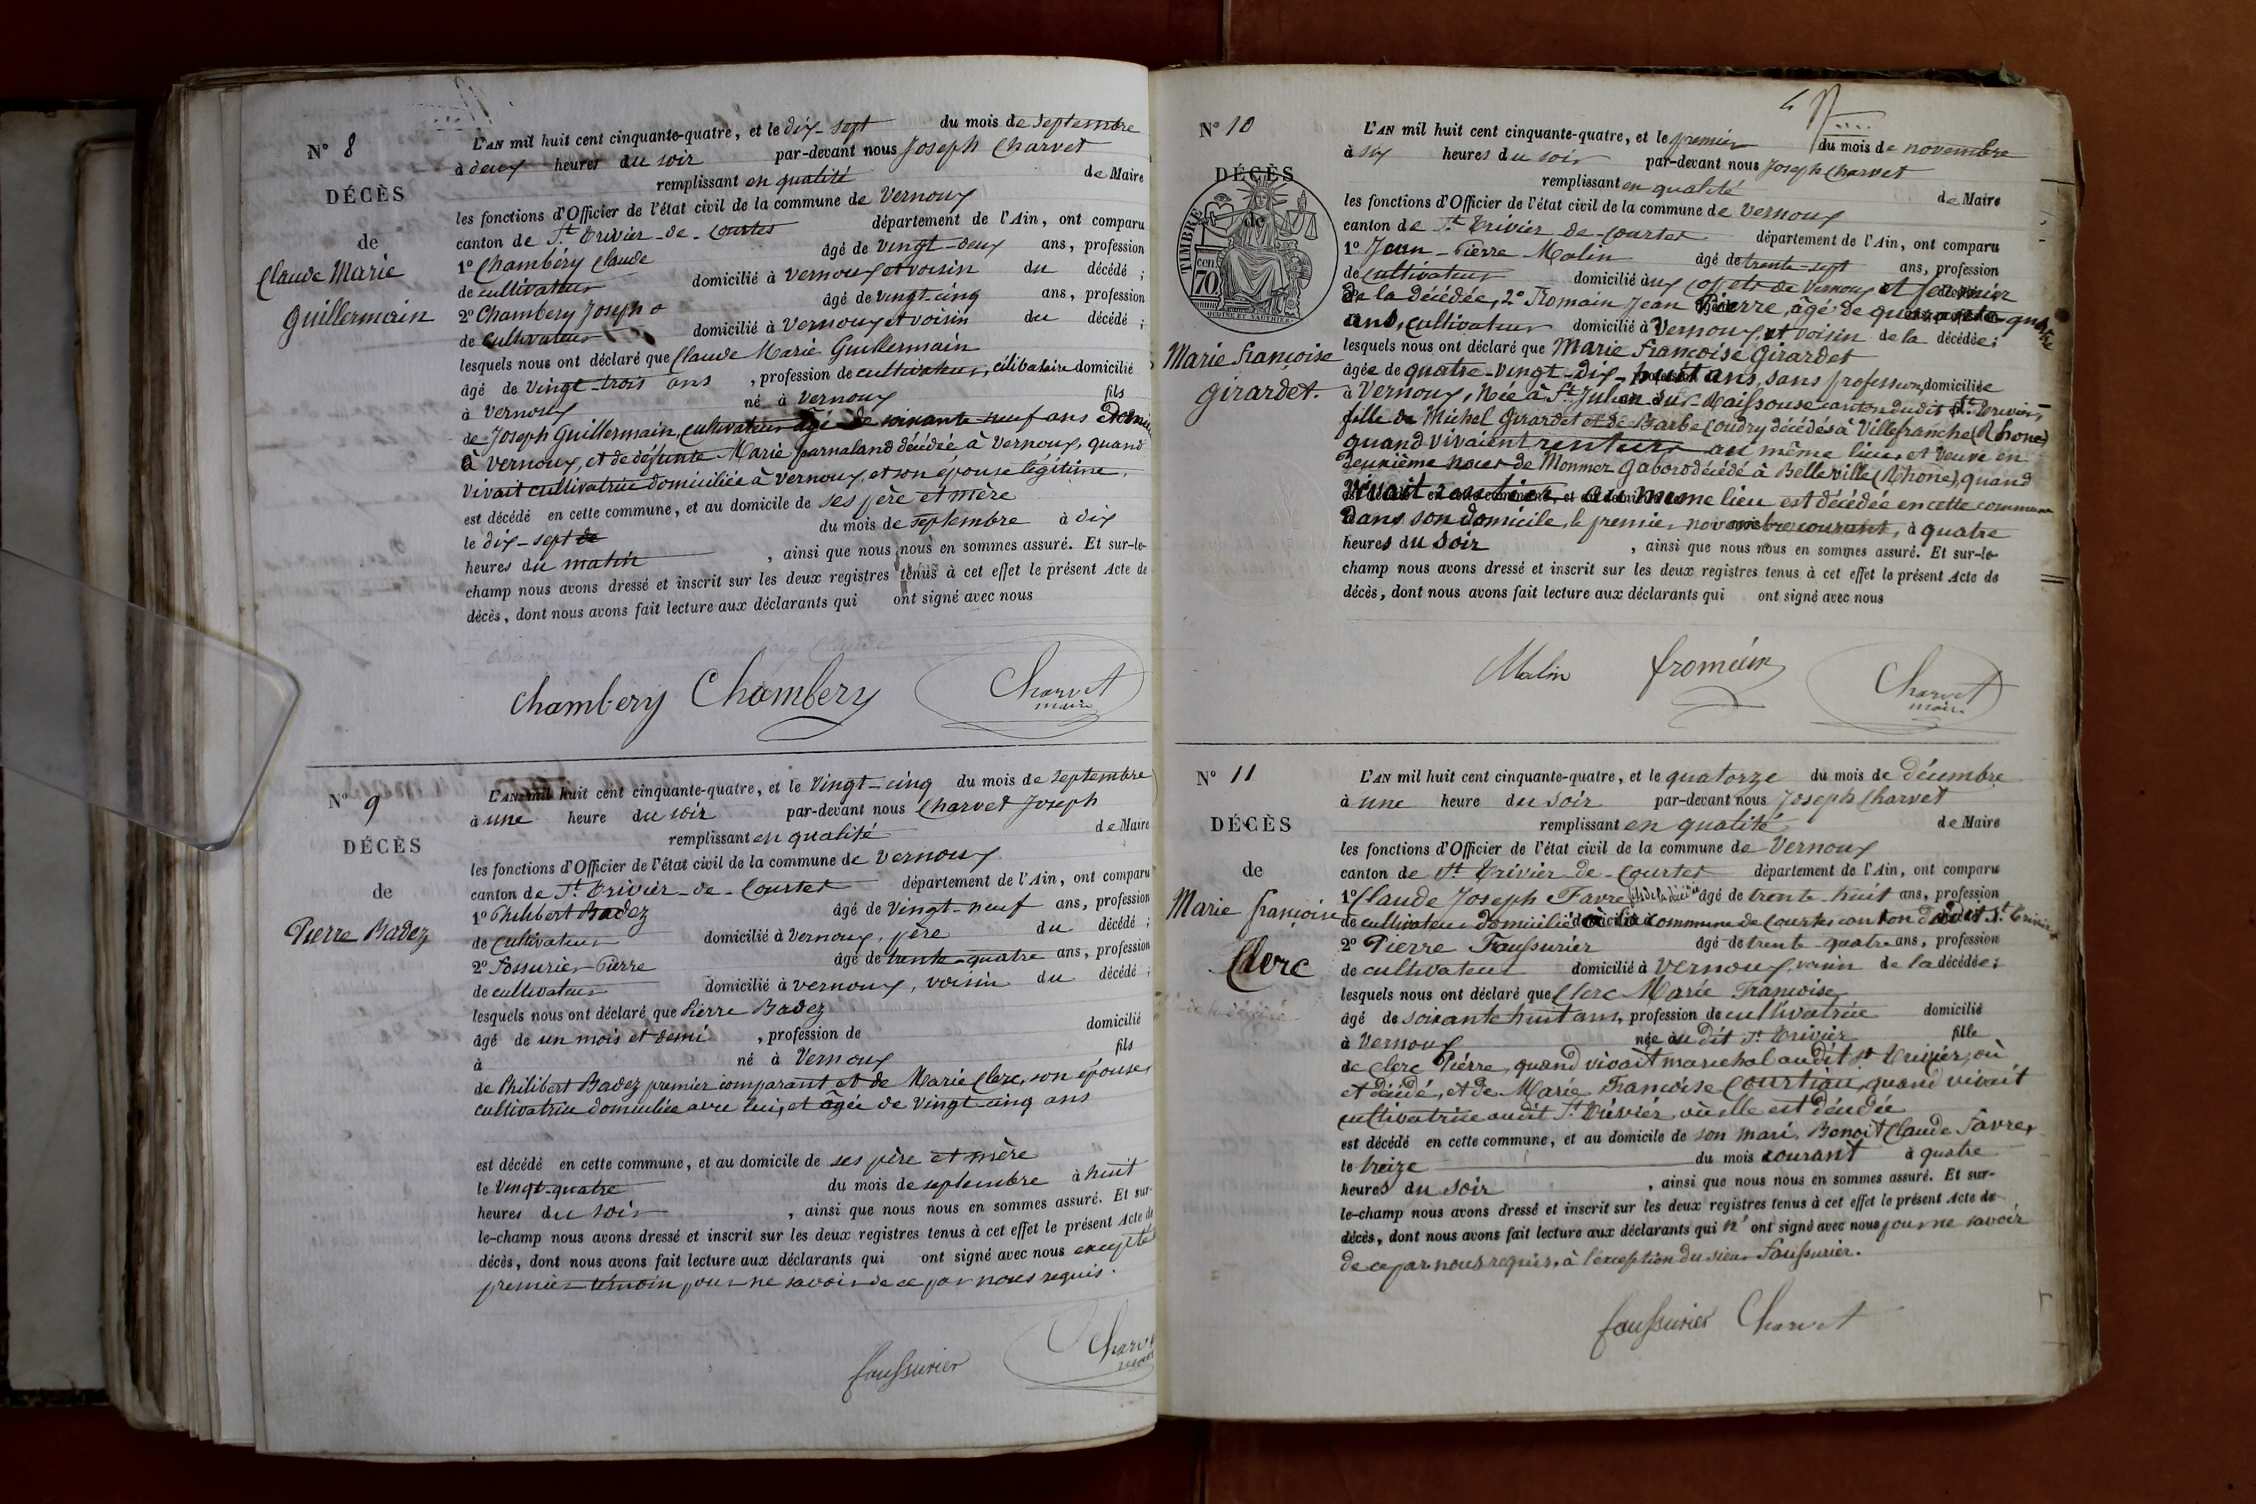 N° 8
DÉCÈS
de
Claude Marie
Guillermain
L'AN mil huit cent cinquante-quatre, et le dix-sept du mois de Septembre
à deux heures du soir par-devant nous Joseph Charvet
remplissant en qualité de Maire
les fonctions d'Officier de l'état civil de la commune de Vernoux
canton de St Trivier-de-Courtes département de l'Ain, ont comparu
1° Chambéry Claude âgé de vingt-deux ans, profession
de cultivateur domicilié à Vernoux et voisin du décédé ;
2° Chambery Joseph âgé de vingt-cinq ans, profession
de cultivateur domicilié à Vernoux et voisin du décédé ;
lesquels nous ont déclaré que Claude Marie Guillermain
âgé de vingt-trois ans , profession de cultivateur, célibataire domicilié
à Vernoux né à Vernoux fils
de Joseph Guillermain, cultivateur âgé de soixante neuf ans
à Vernoux, et de défunte Marie parnaland décédée à Vernoux, quand
vivait cultivatrice domiciliée à Vernoux, et son épouse légitime.
est décédé en cette commune, et au domicile de ses père et mère
le dix-sept de du mois de septembre à dix
heures du matin , ainsi que nous nous en sommes assuré. Et sur-le-
champ nous avons dressé et inscrit sur les deux registres tenus à cet effet le présent Acte de
décès, dont nous avons fait lecture aux déclarants qui ont signé avec nous
Chambery Chambery Charvet
maire
N° 9
DÉCÈS
de
Pierre Badez
L'AN mil huit cent cinquante-quatre, et le vingt-cinq du mois de septembre
à une heure du soir par-devant nous Charvet Joseph
remplissant en qualité de Maire
les fonctions d'Officier de l'état civil de la commune de Vernoux
canton de St Trivier-de-Courtes département de l'Ain, ont comparu
1° Philibert Badez âgé de vingt-neuf ans, profession
de cultivateur domicilié à Vernoux, père du décédé ;
2° Fossurier Pierre âgé de trente-quatre ans, profession
de cultivateur domicilié à Vernoux, voisin du décédé ;
lesquels nous ont déclaré que Pierre Badez
âgé de un mois et demi , profession de domicilié
à né à Vernoux fils
de Philibert Badez premier comparant et de Marie Clerc, son épouse,
cultivatrice domiciliée avec lui, et âgée de vingt-cinq ans
est décédé en cette commune, et au domicile de ses père et mère
le vingt-quatre du mois de septembre à huit
heures du soir , ainsi que nous nous en sommes assuré. Et sur-
le-champ nous avons dressé et inscrit sur les deux registres tenus à cet effet le présent Acte de
décès, dont nous avons fait lecture aux déclarants qui ont signé avec nous excepté
premier témoin pour ne savoir de ce par nous requis.
faussurier Charvet
maire
N° 10
DÉCÈS
de
TIMBRE
cen
70
Marie françoise
girardet.
L'AN mil huit cent cinquante-quatre, et le premier du mois de novembre
à six heures du soir par-devant nous Joseph Charvet
remplissant en qualité de Maire
les fonctions d'Officier de l'état civil de la commune de Vernoux
canton de St Trivier de-Courtes département de l'Ain, ont comparu
1° Jean-Pierre Malin âgé de trente-sept ans, profession
de cultivateur domicilié aux de Vernoux et fermier
de la décédée, 2° Fromain Jean Pierre, âgé de quarante-quatre
ans, cultivateur domicilié à Vernoux, et voisin de la décédée ;
lesquels nous ont déclaré que Marie françoise girardet
âgée de quatre-vingt-dix-huit ans, sans profession, domiciliée
à Vernoux, née à St Julien sur-Raissouse canton dudit St Trivier,
fille de Michel Girardet et de Barbe Coudry décédés à Villefranche (Rhône)
quand vivaient rentiers au même lieu, et veuve en
deuxième noces de Monmez Gaboro décédé à Belleville (Rhône), quand
vivait rentier au même lieu est décédée en cette commune
dans son domicile, le premier novembre courant, à quatre
heures du soir , ainsi que nous nous en sommes assuré. Et sur-le-
champ nous avons dressé et inscrit sur les deux registres tenus à cet effet le présent Acte de
décès, dont nous avons fait lecture aux déclarants qui ont signé avec nous
Malin fromain Charvet
maire
N° 11
DÉCÈS
de
Marie françoise
Clerc
L'AN mil huit cent cinquante-quatre, et le quatorze du mois de décembre
à une heure du soir par-devant nous Joseph Charvet
remplissant en qualité de Maire
les fonctions d'Officier de l'état civil de la commune de Vernoux
canton de St Trivier-de-Courtes département de l'Ain, ont comparu
1° Claude Joseph Favre fils de la décédée âgé de trente-huit ans, profession
de cultivateur domicilié à la commune de Courtes canton dudit St Trivier
2° Pierre Faussurier âgé de trente-quatre ans, profession
de cultivateur domicilié à Vernoux, voisin de la décédée ;
lesquels nous ont déclaré que Clerc Marie Françoise
âgé de soixante huit ans, profession de cultivatrice domicilié
à Vernoux née audit St Trivier fille
de Clerc Pierre, quand vivait maréchal audit St Trivier, où
et décédé, et de Marie Françoise Courtiau, quand vivait
cultivatrice audit St Trivier, où elle est décédée
est décédé en cette commune, et au domicile de son mari, Benoit Claude Favre,
le treize du mois courant à quatre
heures du soir , ainsi que nous nous en sommes assuré. Et sur-
le-champ nous avons dressé et inscrit sur les deux registres tenus à cet effet le présent Acte de
décès, dont nous avons fait lecture aux déclarants qui n' ont signé avec nous pour ne savoir
de ce par nous requis, à l'exception du sieur Faussurier.
faussurier Charvet